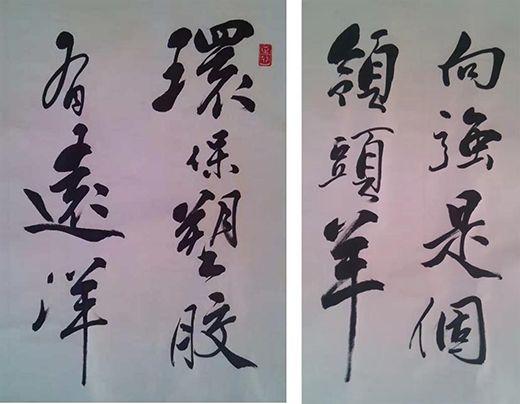 環保塑胶
有遠洋
向強是個
領頭羊